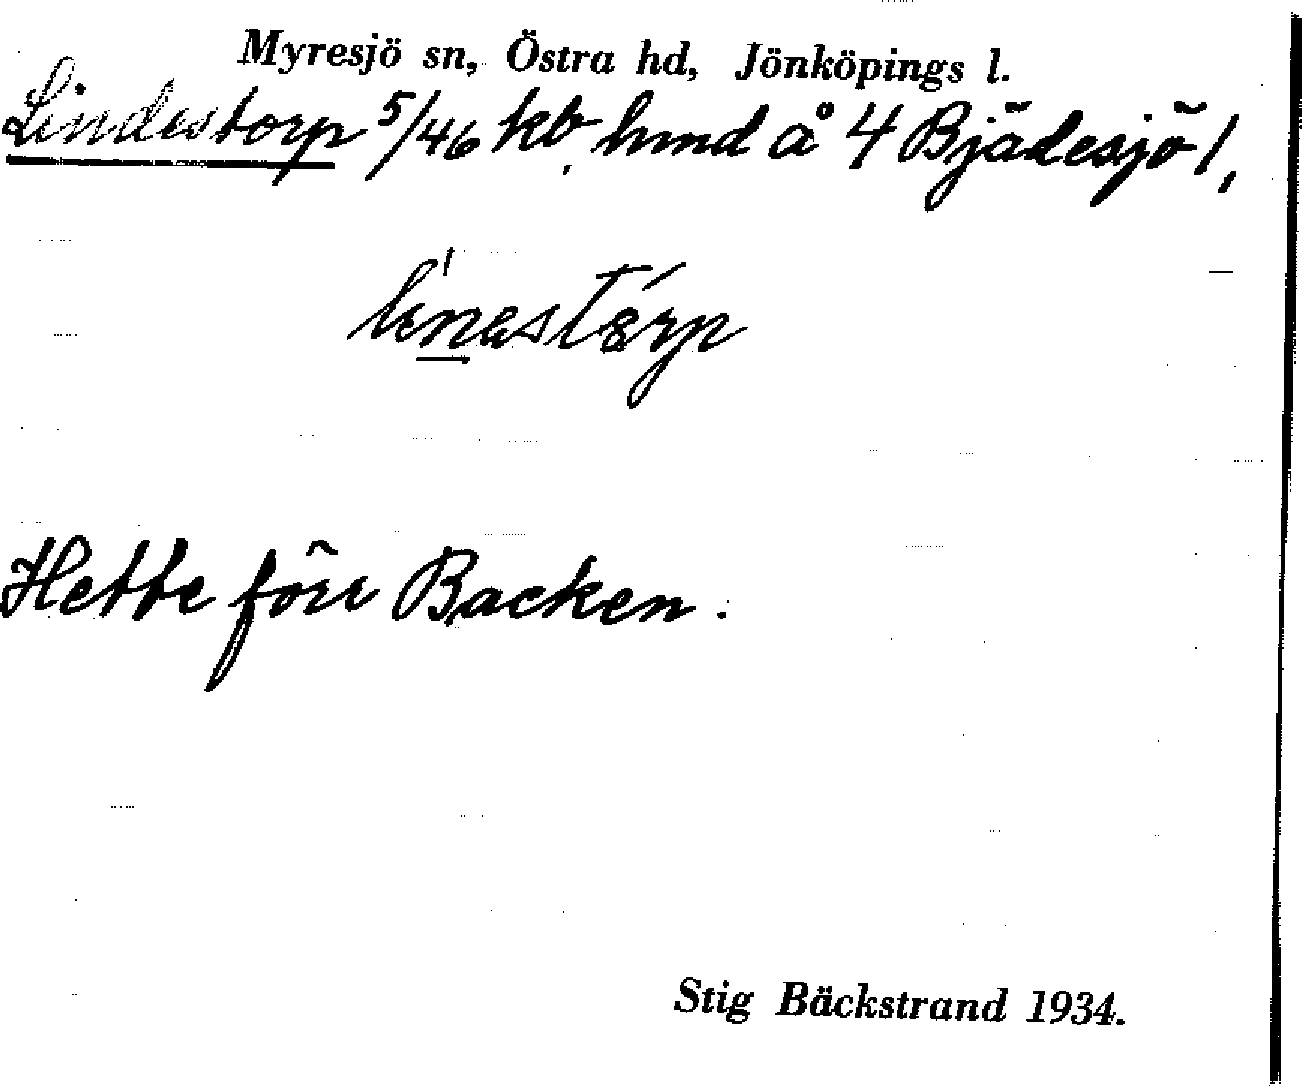 Myresjö sn, Östra hd, Jönköpings l.
Lindestorp 5/46 kb, hmd å 4 Bjädesjö 1,
Hette förr Backen.
Stig Bäckstrand 1934.